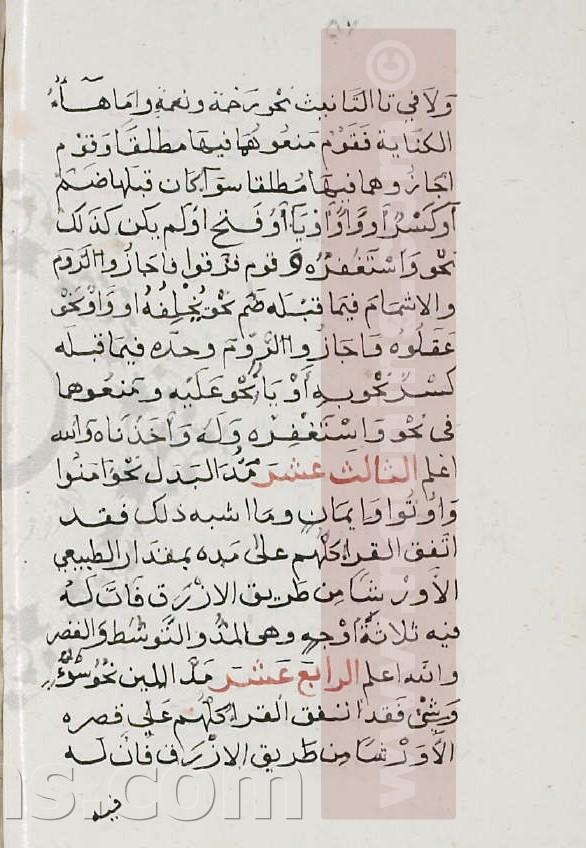 ٥٧
ولا في تا التانيث نحو رحمة ونعمة واما هآء
الكناية فقوم منعوهما فيها مطلقا وقوم
اجازوهما فيها مطلقا سوآ كان قبلها ضم
او كسر او واو او يآ او فتح او لم يكن كذلك
نحو واستغفره وقوم فرقوا فاجازوا الروم
والاشمام فيما قبله ضم نحو يخلفه او واو نحو
عقلوه واجازوا الروم وحده فيما قبله
كسر نحو به أو يا نحو عليه ومنعوهما
في نحو واستغفره وله واخذناه والله
اعلم الثالث عشر مد البدل نحو امنوا
واوتوا وايمان وما اشبه ذلك فقد
اتفق القرا كلهم على مده بمقدار الطبيعي
الا ورشا من طريق الازرق فان له
فيه ثلاثة أوجه وهي المد والتوسط والقصر
والله اعلم الرابع عشر مد اللين نحو سوء
وشئ فقد اتفق القرا كلهم على قصره
الا ورشا من طريق الازرق فان له
فيه